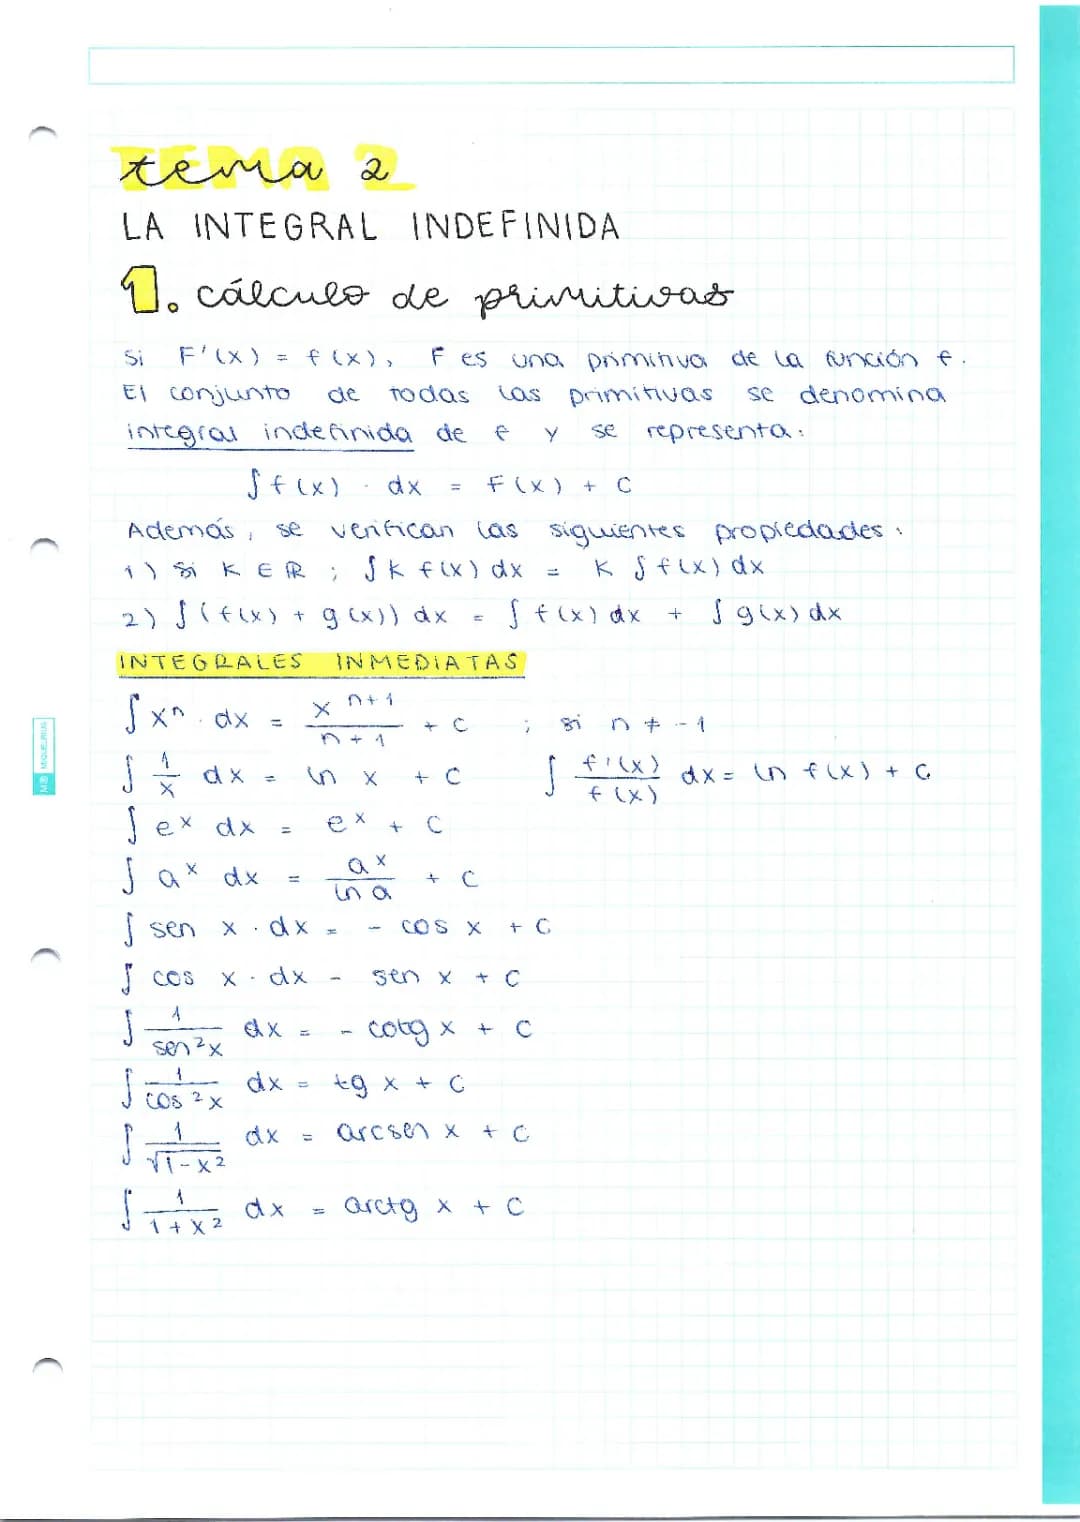 tema 2
LA INTEGRAL INDEFINIDA
1. cálculo de primitivas
Si F'(x) = f(x), F es una primitiva de la función f.
El conjunto de todas las primitivas se denomina
integral indefinida de f y se representa:
∫f(x) · dx = F(x) + C
Además, se verifican las siguientes propiedades:
1) Si K ∈ ℝ ; ∫K f(x) dx = K ∫f(x) dx
2) ∫(f(x) + g(x)) dx = ∫f(x) dx + ∫g(x) dx
INTEGRALES INMEDIATAS
∫xⁿ · dx = x^(n+1)/(n+1) + C ; si n ≠ -1
∫ 1/x dx = ln x + C ∫ f'(x)/f(x) dx = ln f(x) + C
∫ eˣ dx = eˣ + C
∫ aˣ dx = aˣ/ln a + C
∫ sen x · dx = - cos x + C
∫ cos x · dx - sen x + C
∫ 1/sen²x dx = - cotg x + C
∫ 1/cos²x dx = tg x + C
∫ 1/√(1-x²) dx = arcsen x + C
∫ 1/(1+x²) dx = arctg x + C
MIQUELRIUS